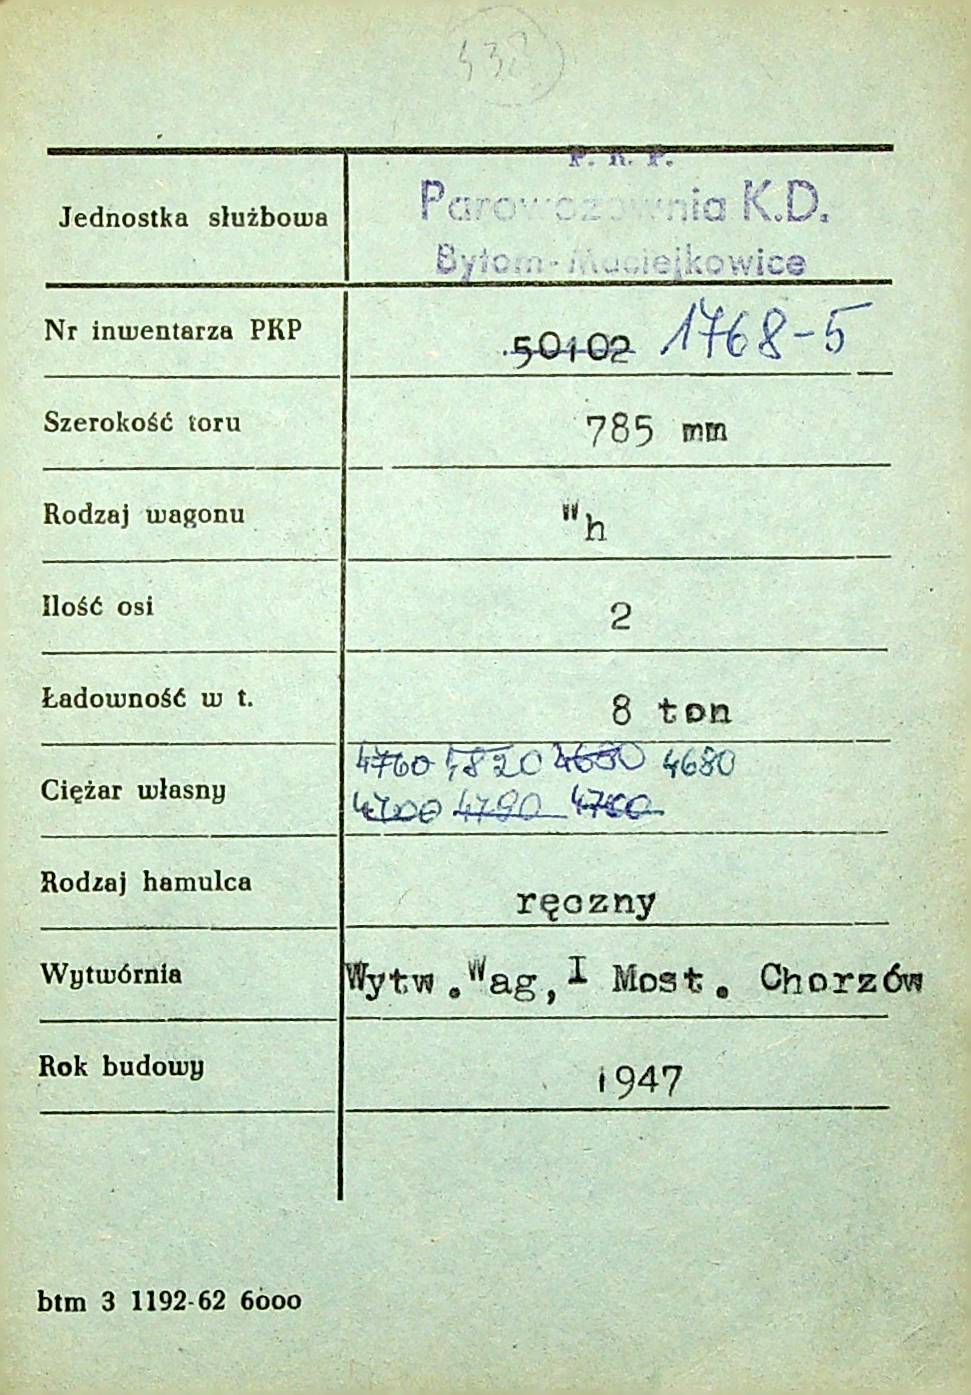 438
P. K. P.
Jednostka służbowa Parowozownia K.D.
Bytom-Maciejkowice
Nr inwentarza PKP 50102 1768-5
Szerokość toru 785 mm
Rodzaj wagonu Wh
Ilość osi 2
Ładowność w t. 8 ton
4760 4820 4680 4680
Ciężar własny
4700 4790 4700
Rodzaj hamulca ręczny
Wytwórnia Wytw.Wag,I Most. Chorzów
Rok budowy 1947
btm 3 1192-62 6000